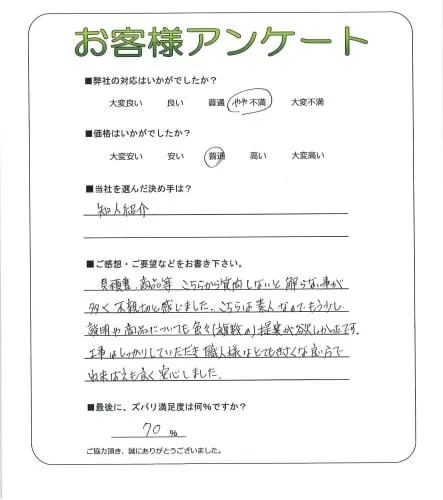 お客様アンケート
■弊社の対応はいかがでしたか?
大変良い 良い 普通 やや不満 大変不満
■価格はいかがでしたか?
大変安い 安い 普通 高い 大変高い
■当社を選んだ決め手は?
知人紹介
■ご感想・ご要望などをお書き下さい。
見積書、商品等 こちらから質問しないと解らない事が
多く不親切と感じました。こちらは素人なのでもう少し
説明や商品についても色々(複数の)提案が欲しかったです。
工事はしっかりしていただき職人様はとてもきさくな良い方で
出来ばえも良く安心しました。
■最後に、ズバリ満足度は何%ですか?
70 %
ご協力頂き、誠にありがとうございました。